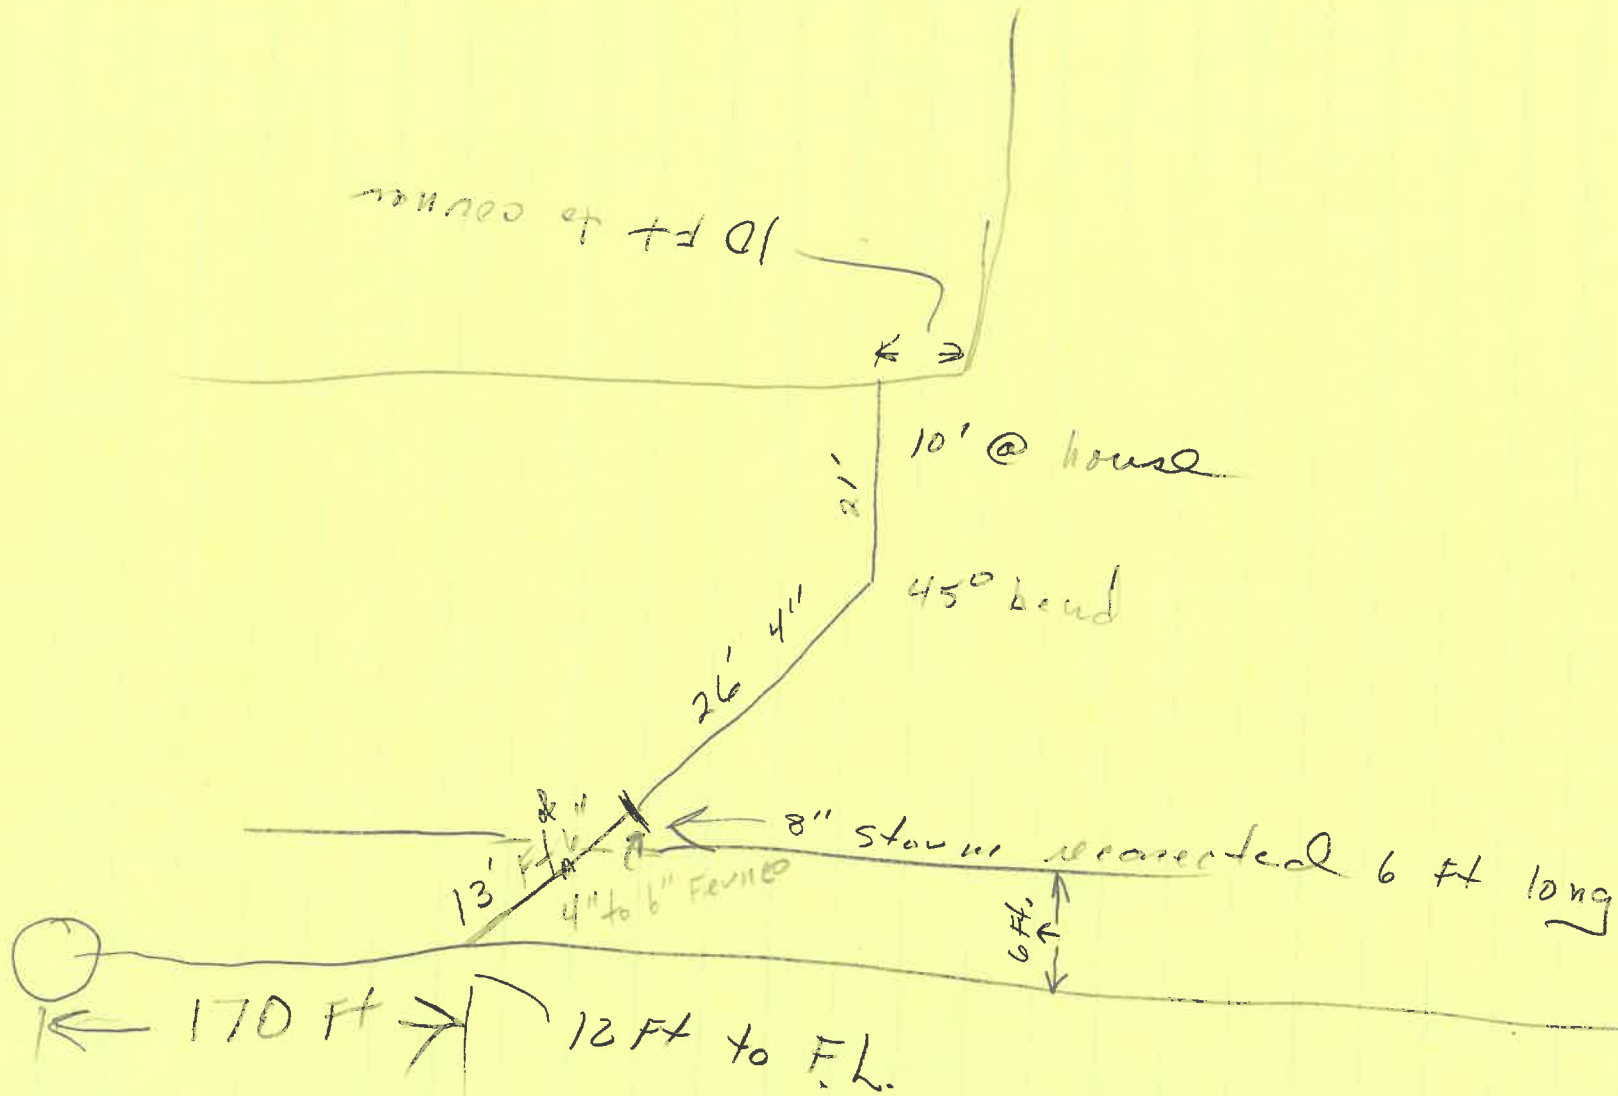 10 Ft to corner
10' @ house
2'
45° bend
26' 4"
8" Storm 6 Ft long
13'
4" to 6" Fernco
6 Ft.
170 Ft
12 Ft to F.L.